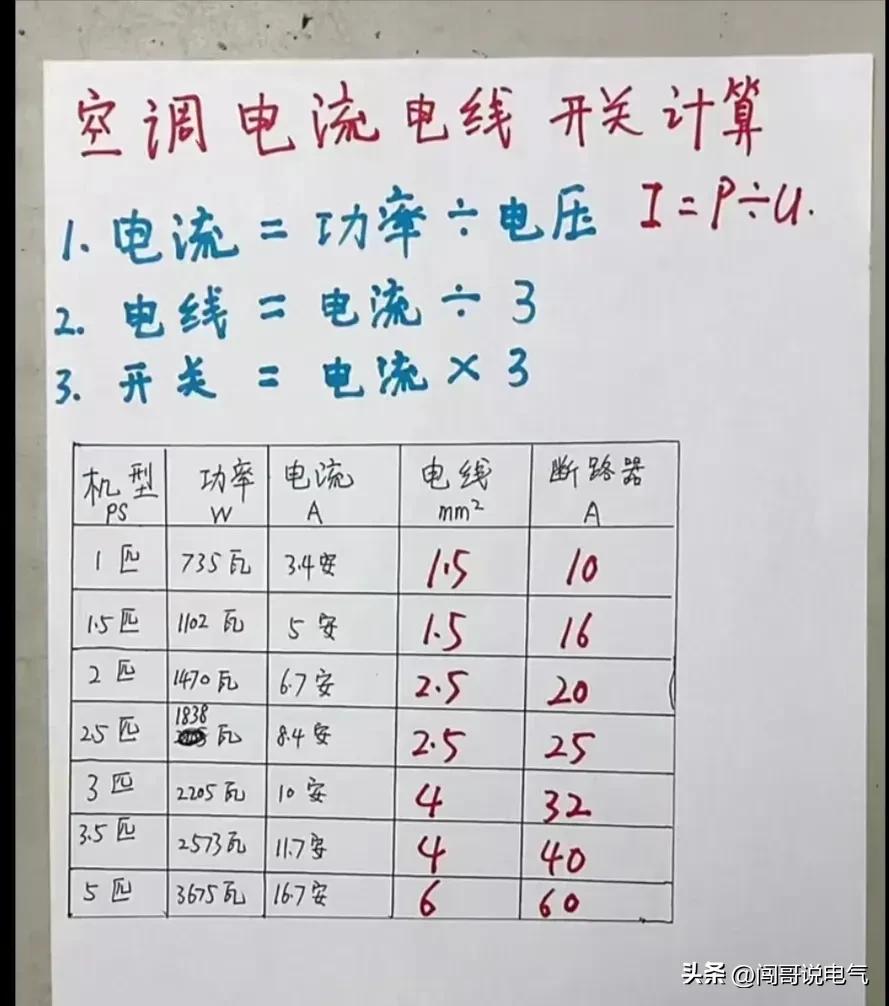 空调电流电线开关计算
1. 电流 = 功率 ÷ 电压 I = P ÷ U.
2. 电线 = 电流 ÷ 3
3. 开关 = 电流 × 3
机型 PS 功率 W 电流 A 电线 mm² 断路器 A
1匹 735瓦 3.4安 1.5 10
1.5匹 1102瓦 5安 1.5 16
2匹 1470瓦 6.7安 2.5 20
25匹 1838瓦 8.4安 2.5 25
3匹 2205瓦 10安 4 32
3.5匹 2573瓦 11.7安 4 40
5匹 3675瓦 16.7安 6 60
头条 @闯哥说电气